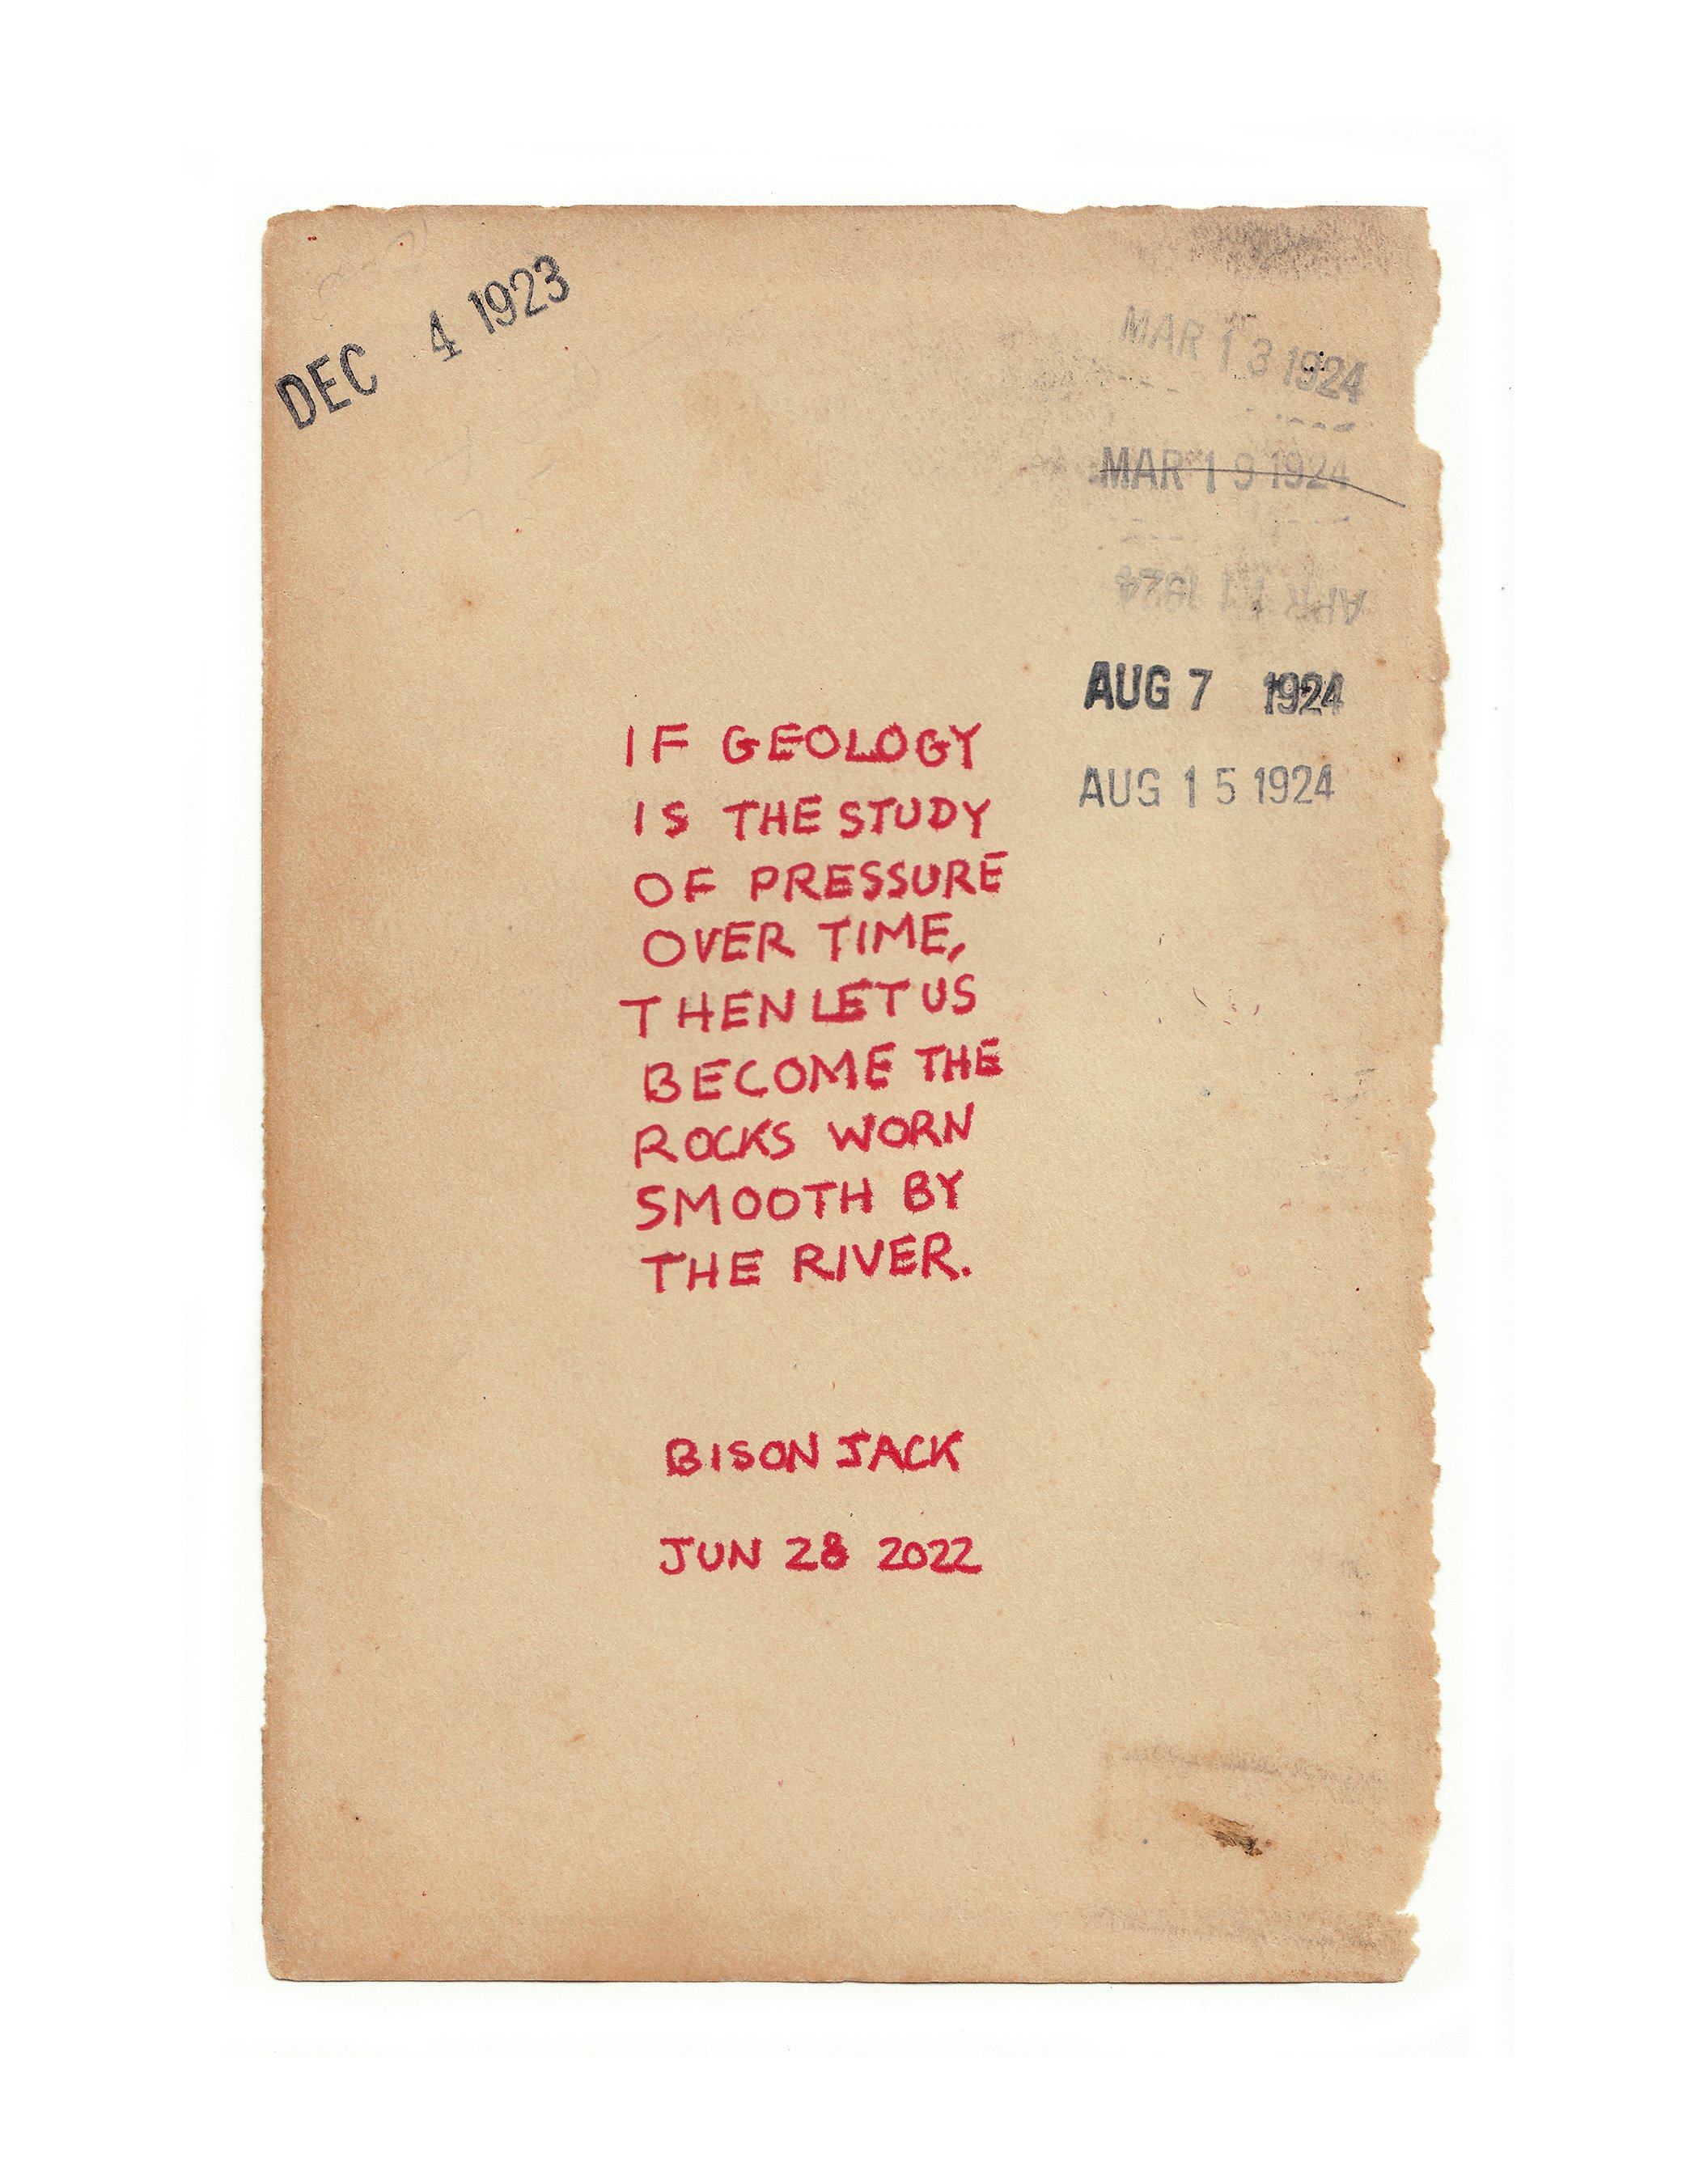 DEC 4 1923
MAR 13 1924
MAR 19 1924
APR 11 1924
AUG 7 1924
AUG 15 1924
IF GEOLOGY
IS THE STUDY
OF PRESSURE
OVER TIME,
THEN LET US
BECOME THE
ROCKS WORN
SMOOTH BY
THE RIVER.
BISON JACK
JUN 28 2022